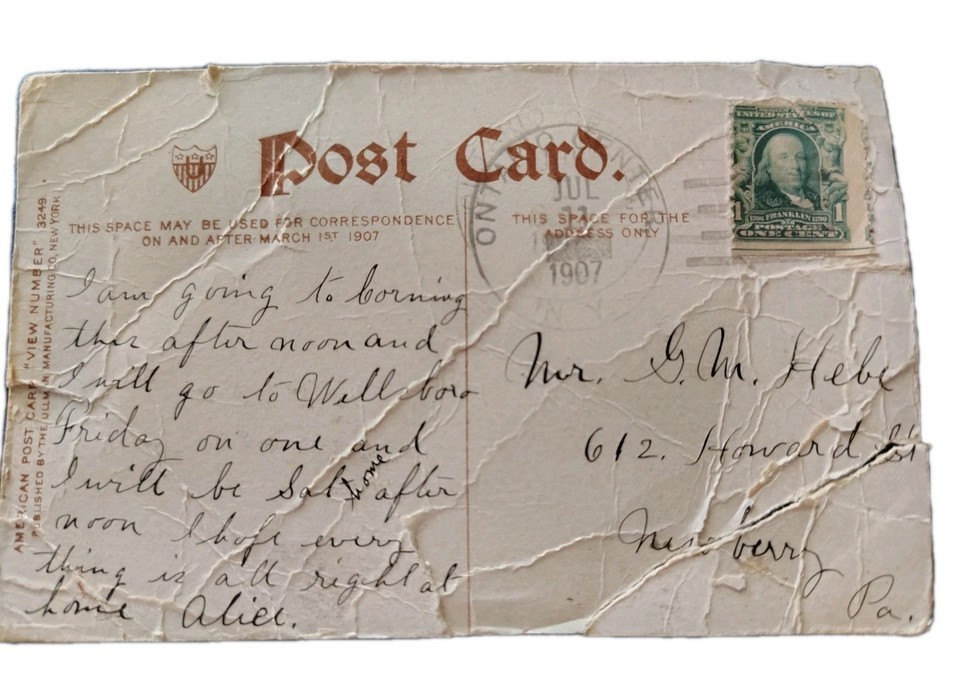 Post Card.
THIS SPACE MAY BE USED FOR CORRESPONDENCE
ON AND AFTER MARCH 1ST 1907
THIS SPACE FOR THE
ADDRESS ONLY
AMERICAN POST CARD "VIEW NUMBER" 3249
PUBLISHED BY THE ULLMAN MANUFACTURING CO, NEW YORK
JUL
11
1907
N.Y.
UNITED STATES OF
AMERICA
1 FRANKLIN 1
POSTAGE
ONE CENT
I am going to Corning
this after noon and
I will go to Wellsboro
Friday on one and
I will be home Sat after
noon I hope every
thing is all right at
home Alice.
Mr. G. M. Hebe
612. Howard St
Newberry
Pa.